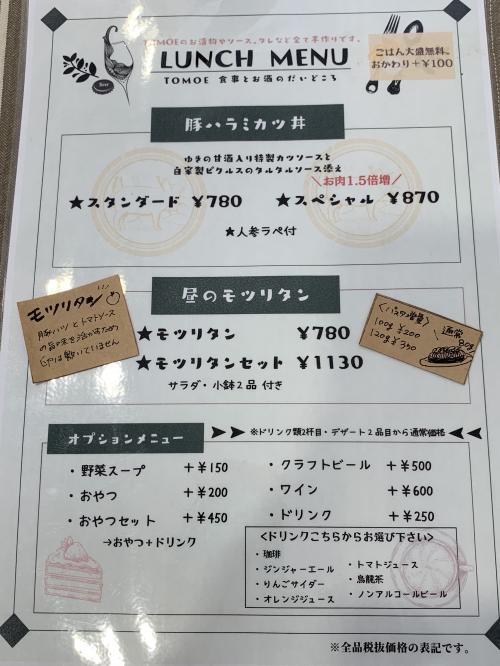 TOMOEのお漬物やソース、タレなど全て手作りです。
LUNCH MENU
TOMOE 食事とお酒のだいどころ
ごはん大盛無料。
おかわり+¥100
Beer
豚ハラミカツ丼
ゆきの甘酒入り特製カツソースと
自家製ピクルスのタルタルソース添え
\お肉1.5倍増/
★スタンダード ¥780 ★スペシャル ¥870
★人参ラペ付
昼のモツリタン
モツリタン
豚ハツとトマトソース
の旨味を活かすため
いません
★モツリタン ¥780
★モツリタンセット ¥1130
サラダ・小鉢2品 付き
<パスタ増量>
100g ¥200
120g ¥350
通常
80g
オプションメニュー
※ドリンク類2杯目・デザート2品目から通常価格
・野菜スープ +¥150
・おやつ +¥200
・おやつセット +¥450
→おやつ+ドリンク
・クラフトビール +¥500
・ワイン +¥600
・ドリンク +¥250
<ドリンクこちらからお選び下さい>
・珈琲
・ジンジャーエール
・りんごサイダー
・オレンジジュース
・トマトジュース
・烏龍茶
・ノンアルコールビール
※全品税抜価格の表記です。